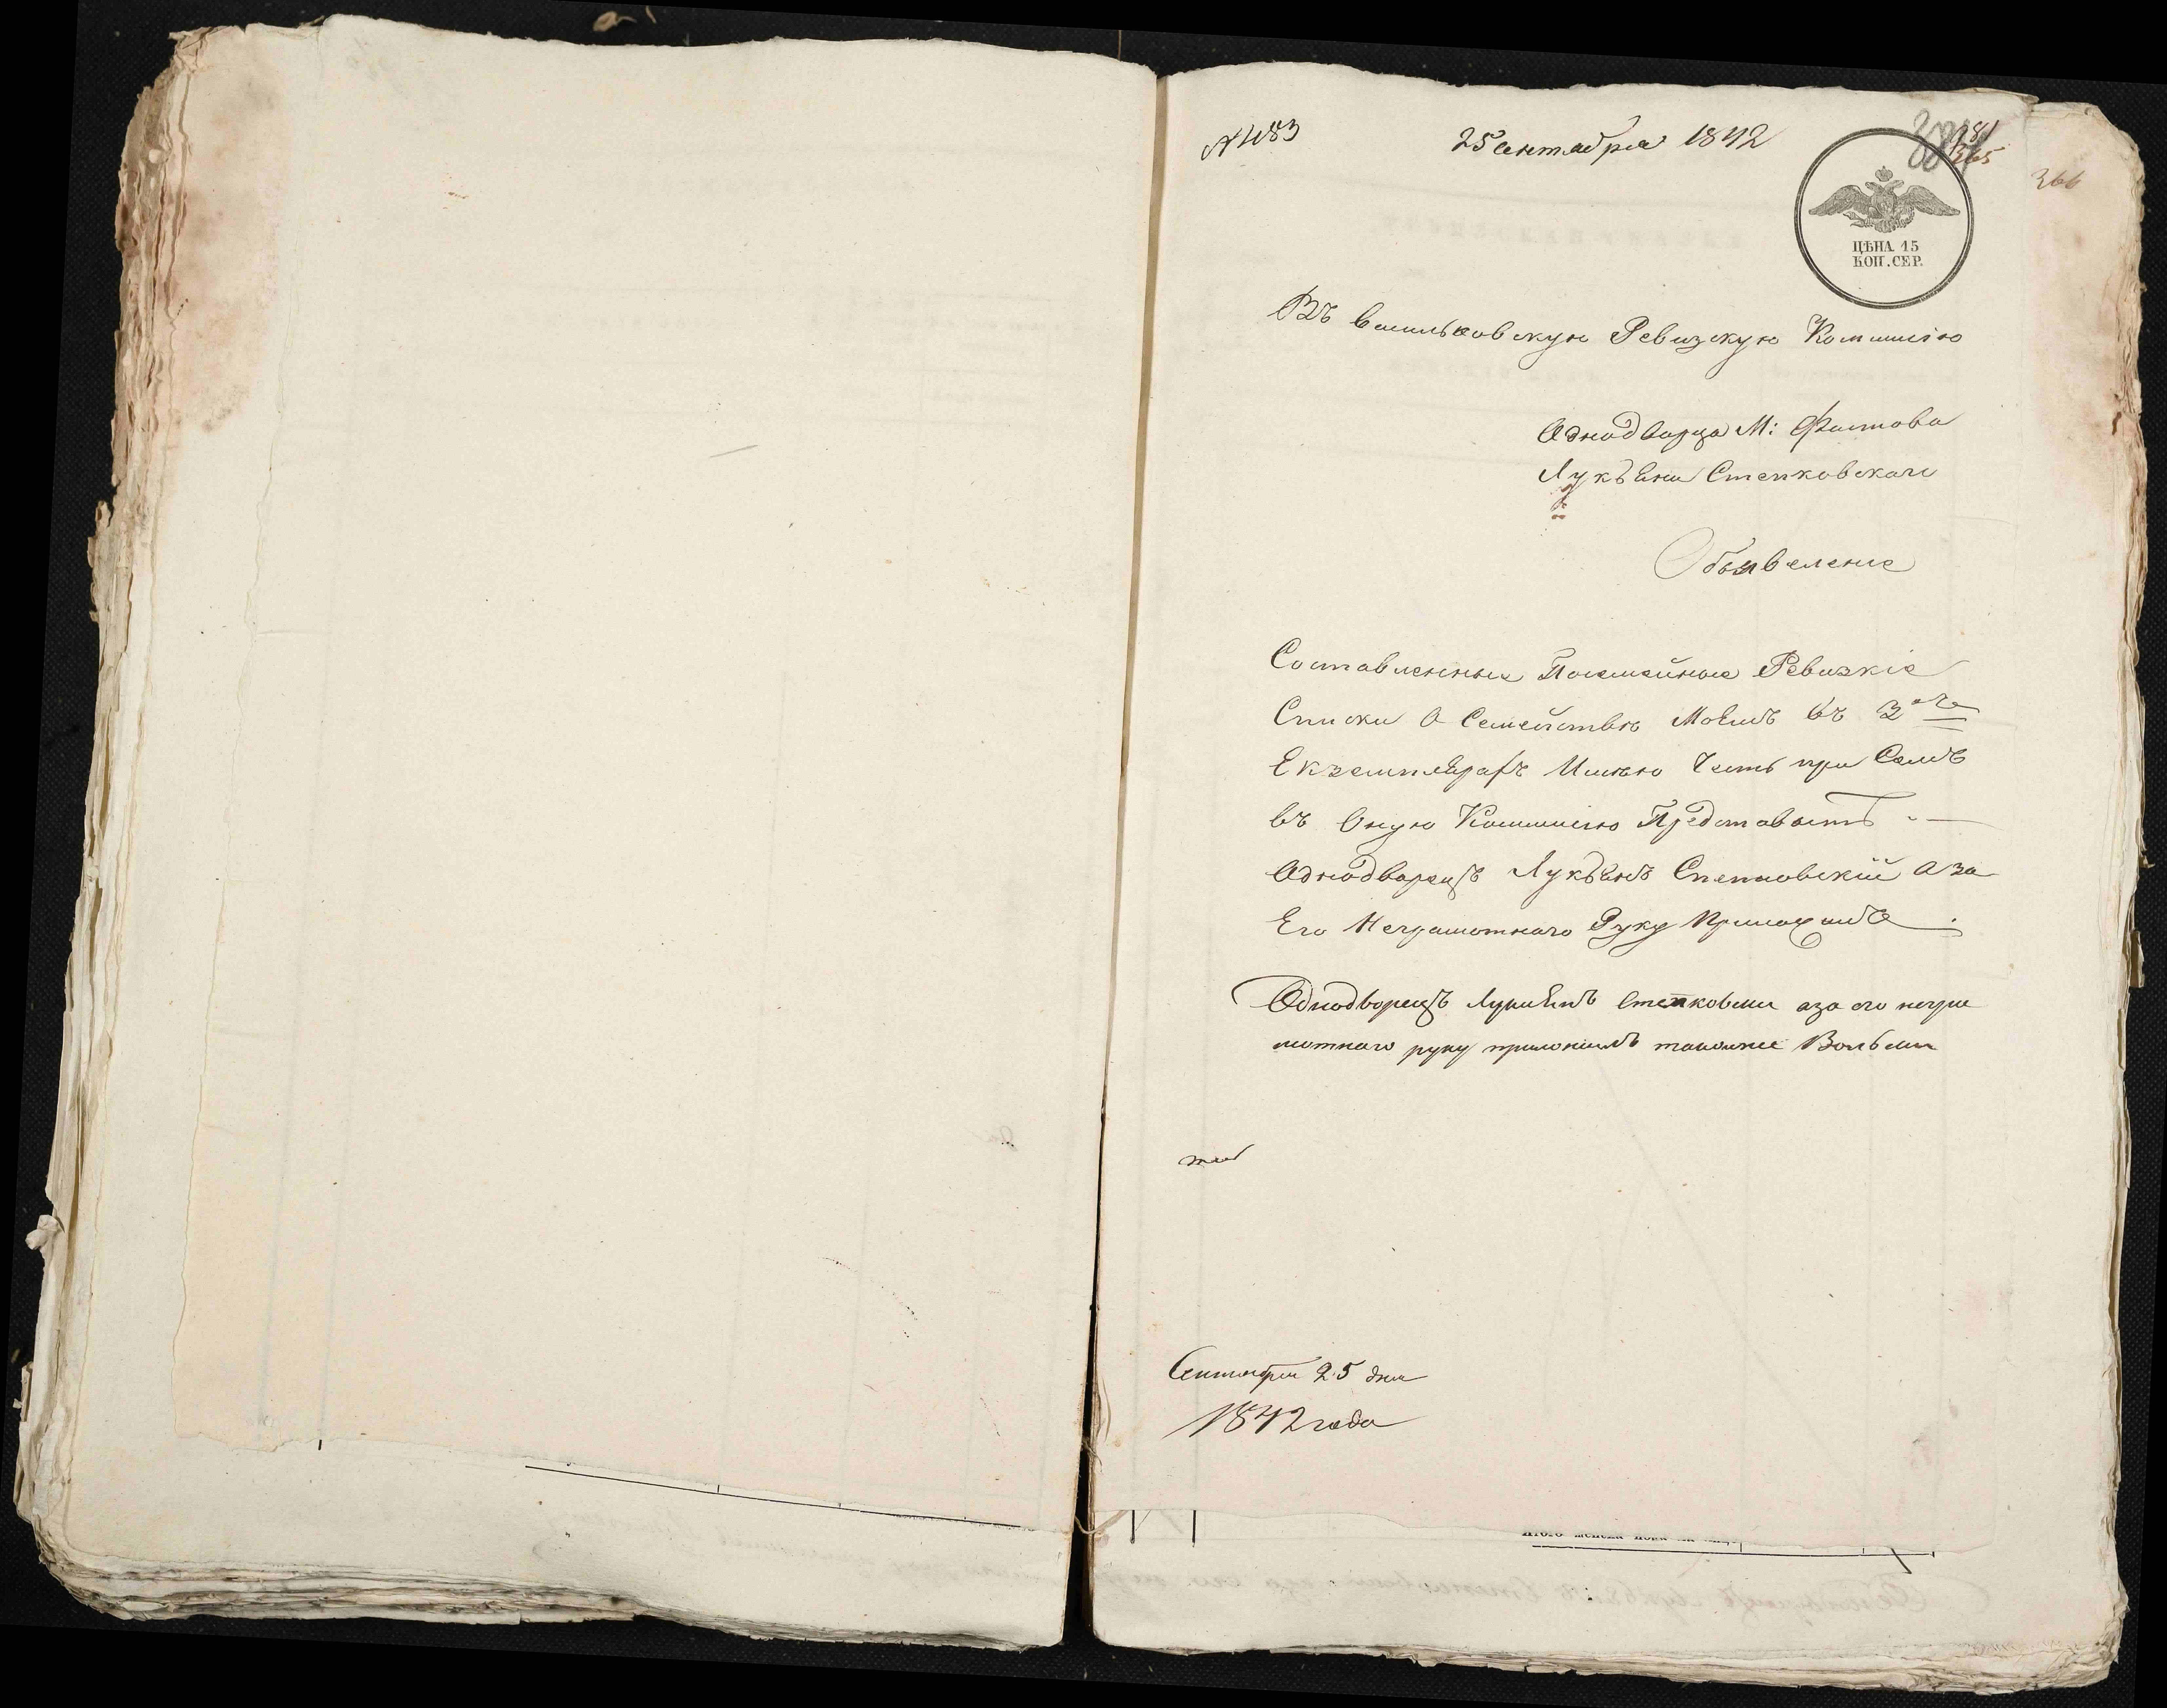 № 1183
25 сентября 1842
381
365
366
ЦѢНА 15
КОП. СЕР.
Въ васильковскую Ревизскую Коммисію
Однодворца М: Фастова
Лукъяна Степковскаго
Объявеление
Составленныя Посемейные Ревизкіе
Списки О Семействѣ Моемъ въ 2хъ
Екземплярахъ Имею Честь при Семъ
въ Оную Коммисію Представить
Однодворецъ Лукъянъ Степковскій а за
Его Неграмотнаго Руку Приложилъ
Однодворецъ Лукиянъ Степковски аза его негра
мотнаго руку приложилъ
Сентября 25 дня
1842 года